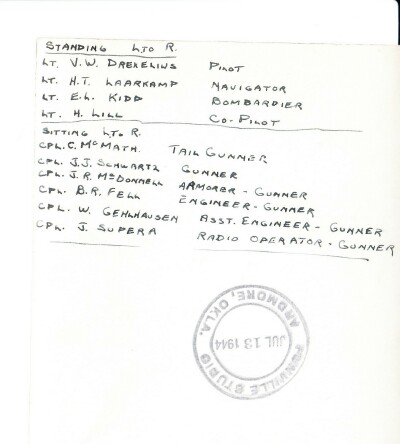 STANDING L TO R.
LT. V.W. DREXELIUS PILOT
LT. H.T. LAARKAMP NAVIGATOR
LT. E.L. KIDD BOMBARDIER
LT. H. LILL CO-PILOT
SITTING L TO R.
CPL. C. McMATH. TAIL GUNNER
CPL. J.J. SCHWARTZ GUNNER
CPL. J.R. McDONNELL ARMORER - GUNNER
CPL. B.R. FELL ENGINEER - GUNNER
CPL. W. GEHLHAUSEN ASST. ENGINEER - GUNNER
CPL. J. SUPERA RADIO OPERATOR - GUNNER
STUDIO
ARDMORE, OKLA.
JUL 13 1944